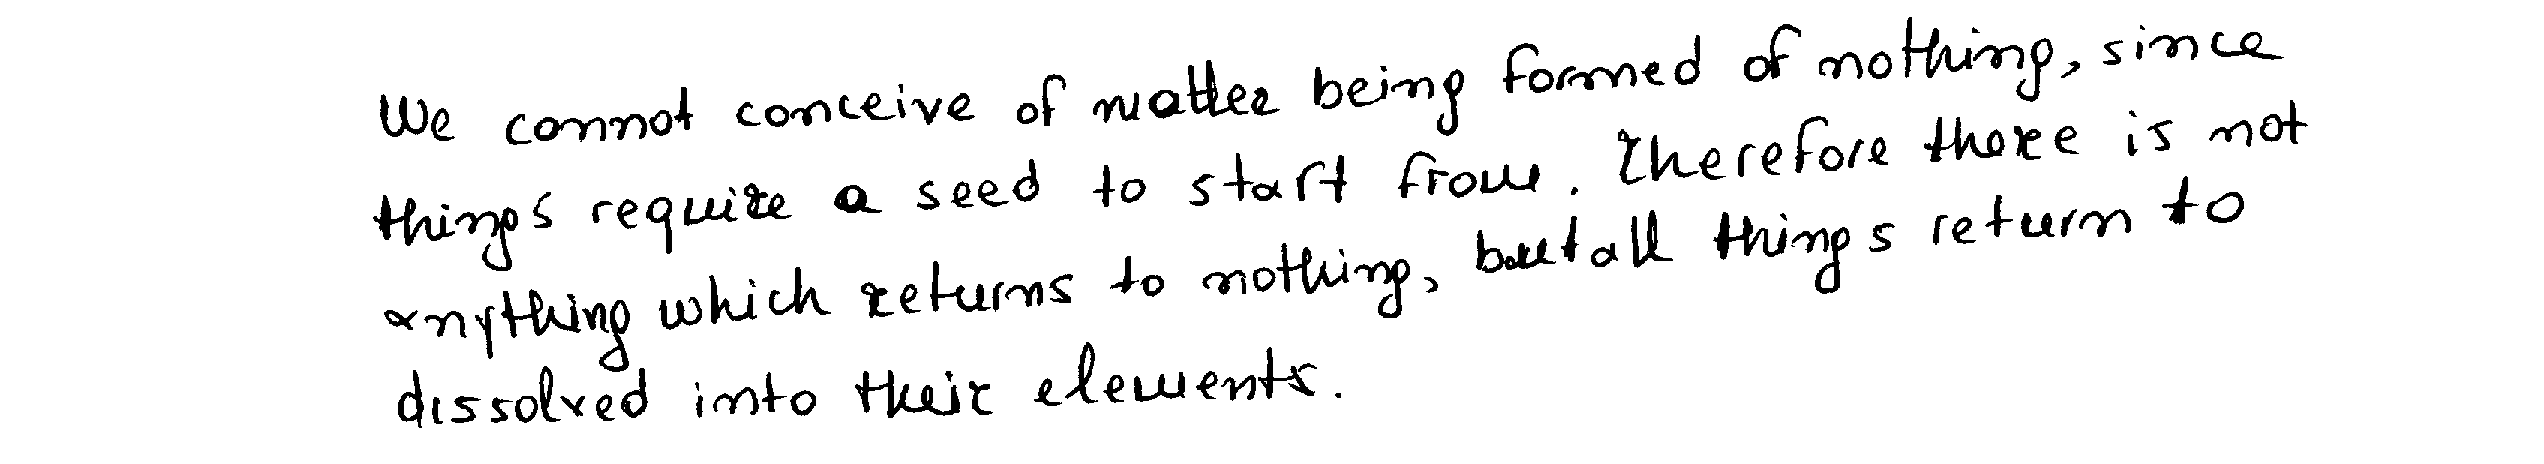 We cannot conceive of matter being formed of nothing, since
things require a seed to start from. Therefore there is not
anything which returns to nothing, but all things return to
dissolved into their elements.